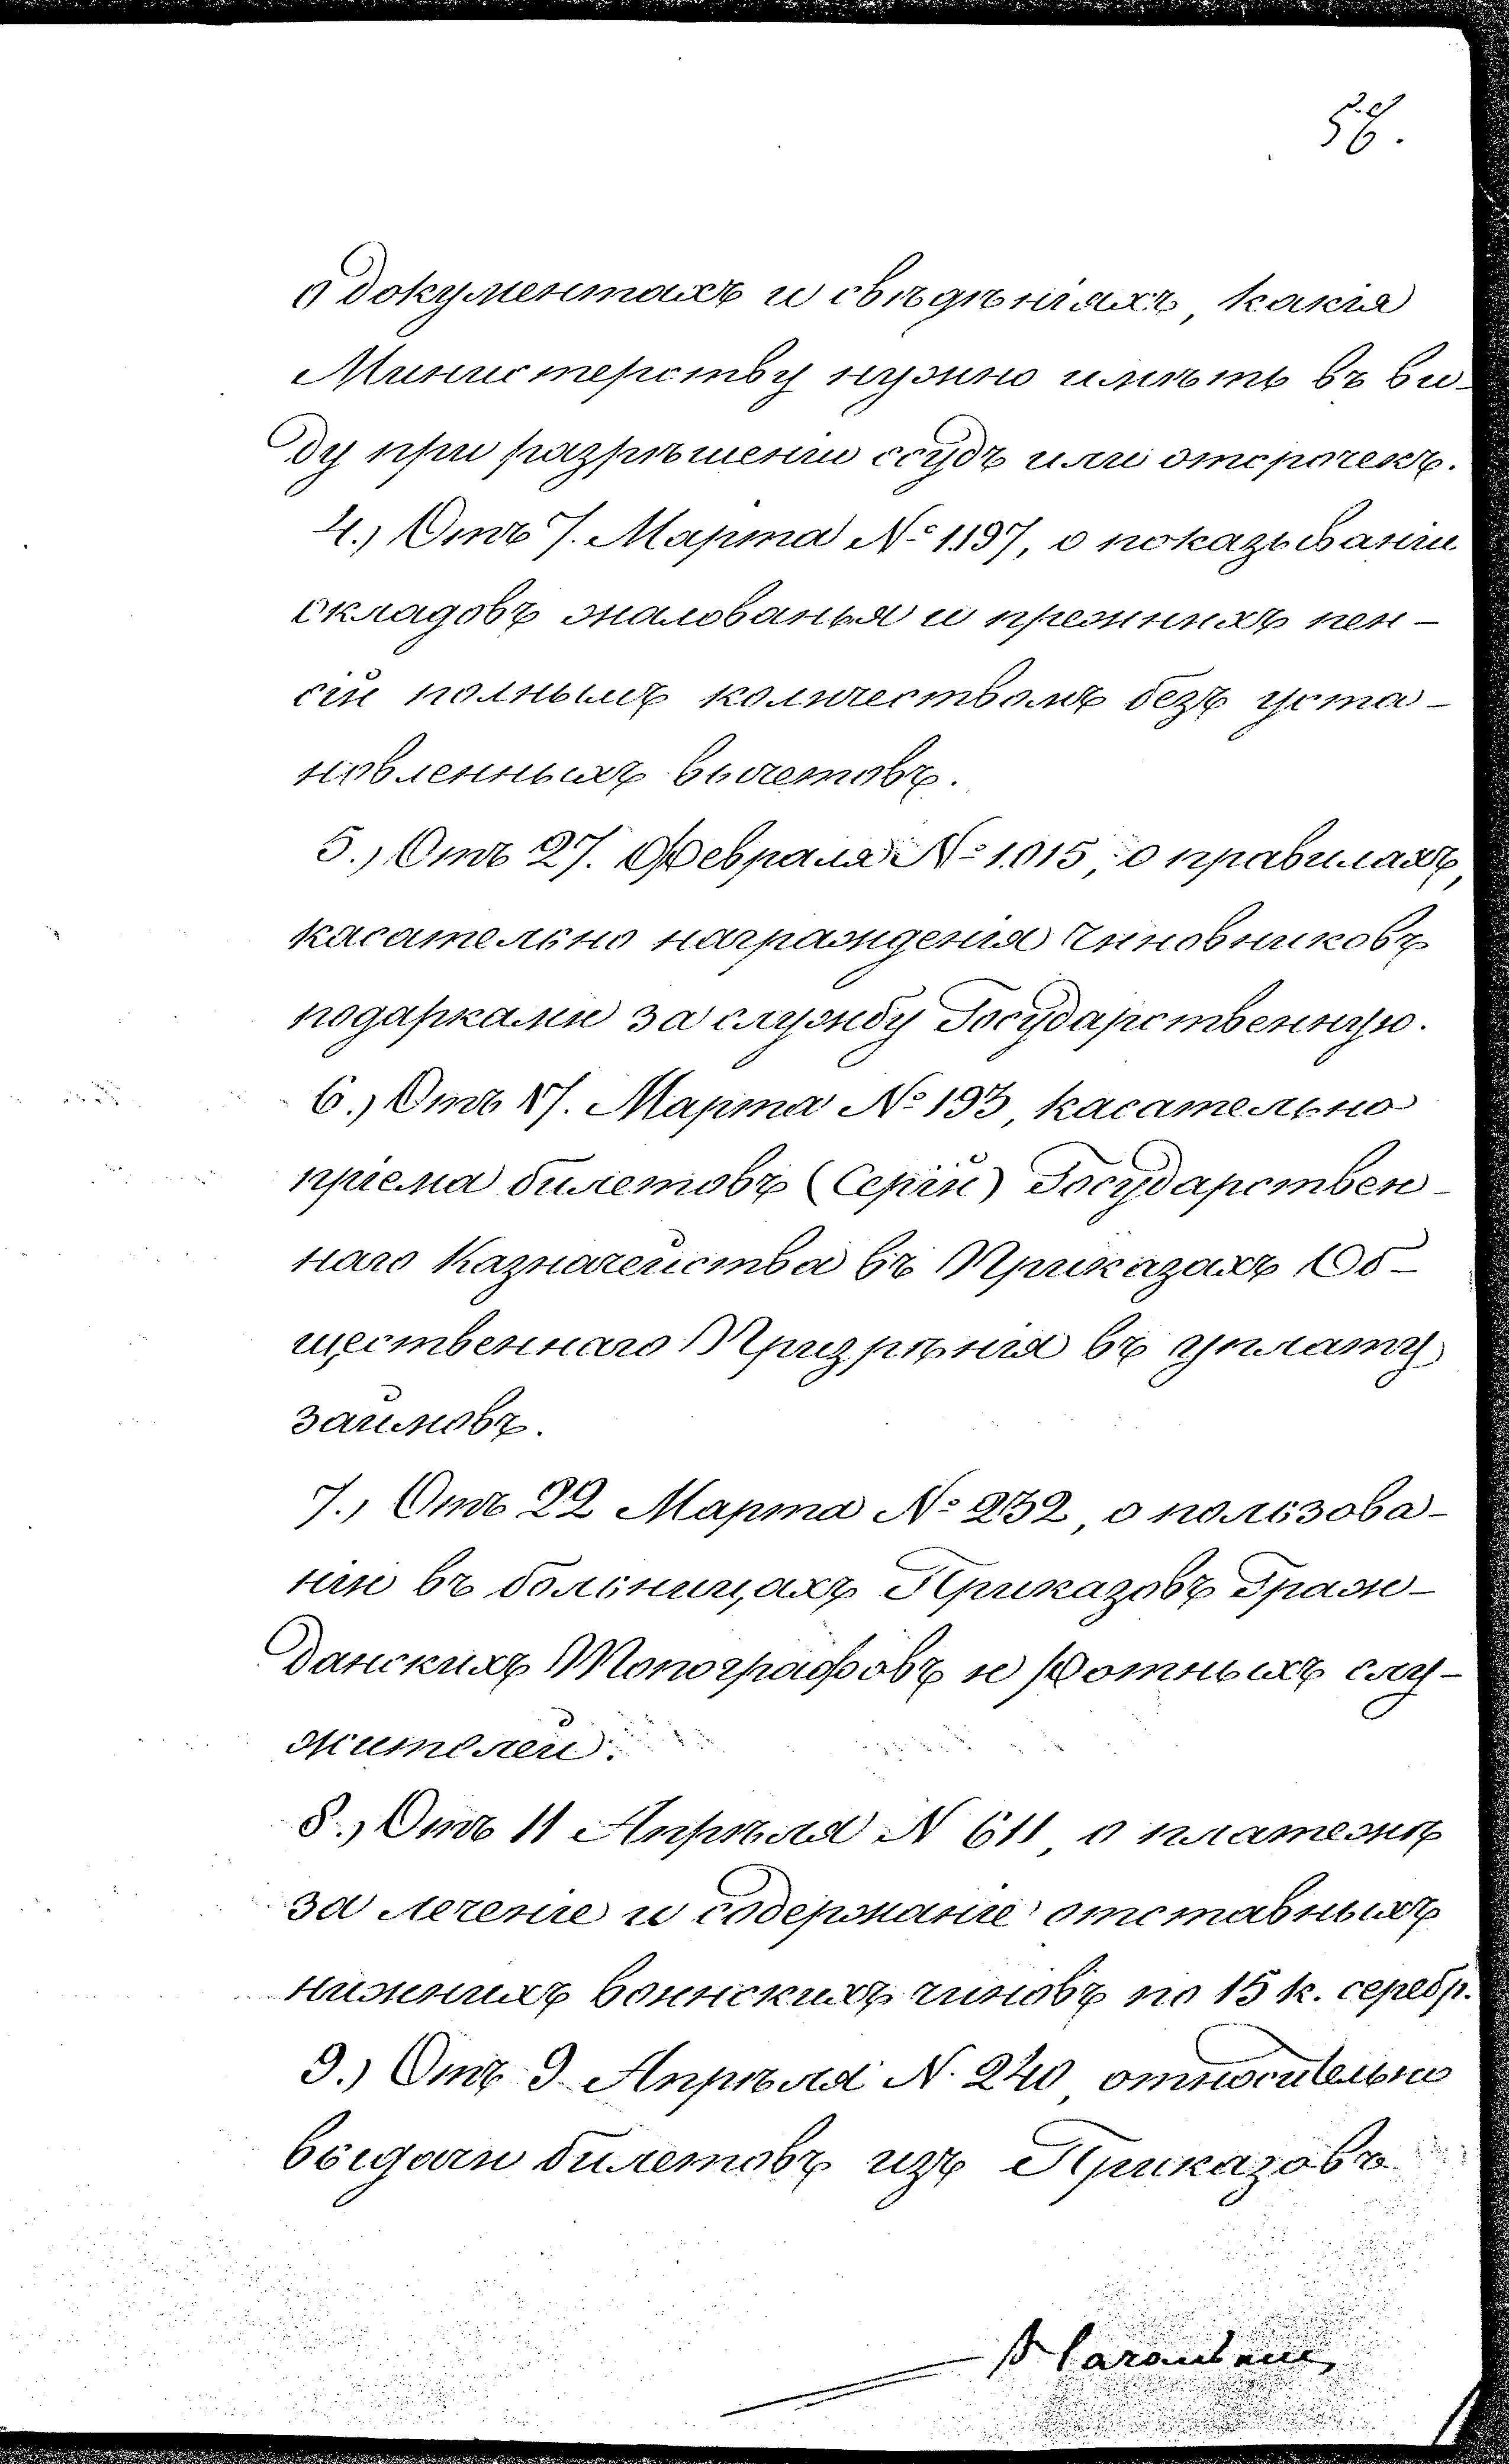 58.
о документахъ и свѣдѣніяхъ, какія
Министерству нужно имѣть въ ви-
ду при разрѣшеніи ссудъ или отсрочекъ.
4.) Отъ 7. Марта № 1197, о показываніи
окладовъ жалованья и прежнихъ пен-
сій полнымъ количествомъ безъ уста-
новленныхъ вычетовъ.
5.) Отъ 27. Февраля № 1015, о правилахъ,
касательно награжденія Чиновниковъ
подарками за службу Государственную.
6.) Отъ 17. Марта № 193, касательно
пріема билетовъ (Серій) Государствен-
наго Казначейства въ Приказахъ Об-
щественнаго Призрѣнія въ уплату
займовъ.
7.) Отъ 22 Марта № 232, о пользова-
ніи въ больницахъ Приказовъ Граж-
данскихъ Топографовъ и Ротныхъ слу-
жителей.
8.) Отъ 11 Апрѣля N 611, о платежѣ
за леченіе и содержаніе отставныхъ
нижнихъ воинскихъ чиновъ по 15 к. серебр.
9.) Отъ 9 Апрѣля N. 240, относительно
выдачи билетовъ изъ Приказовъ